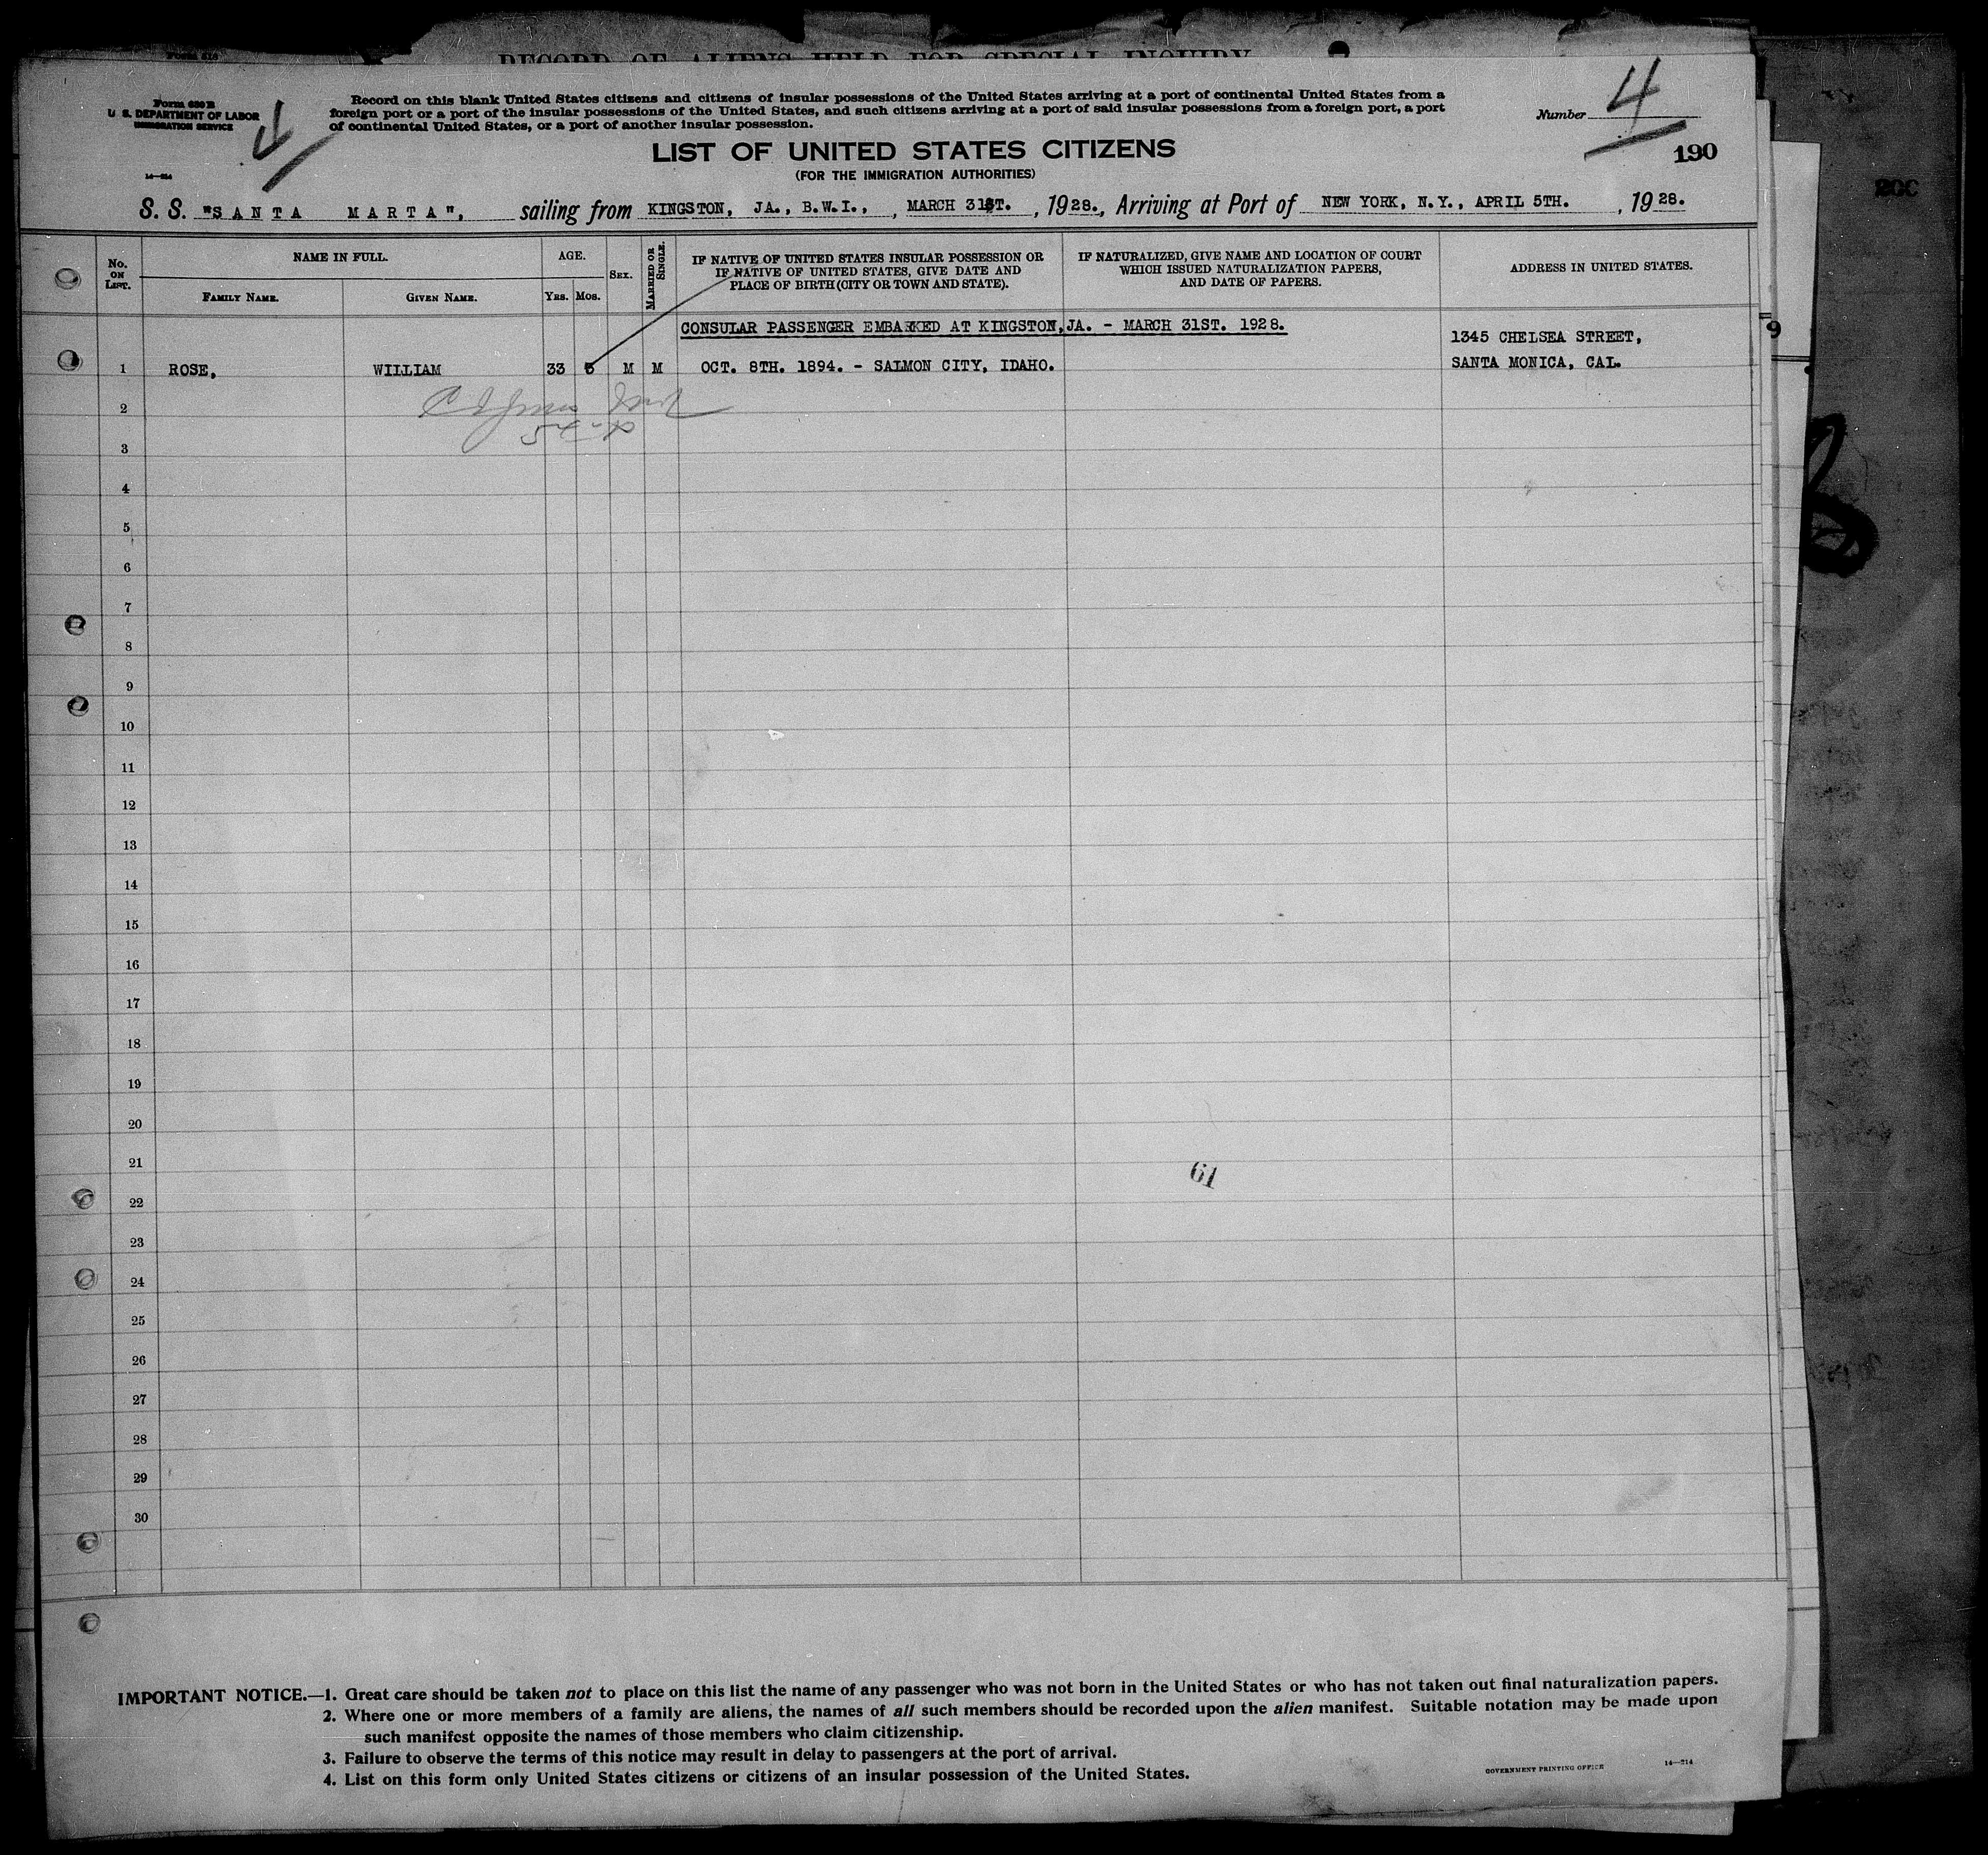 RECORD OF ALIENS HELD FOR SPECIAL INQUIRY
Form 630 B
U. S. DEPARTMENT OF LABOR
IMMIGRATION SERVICE
14—214
Record on this blank United States citizens and citizens of insular possessions of the United States arriving at a port of continental United States from a
foreign port or a port of the insular possessions of the United States, and such citizens arriving at a port of said insular possessions from a foreign port, a port
of continental United States, or a port of another insular possession.
Number 4
190
LIST OF UNITED STATES CITIZENS
(FOR THE IMMIGRATION AUTHORITIES)
S. S. "SANTA MARTA", sailing from KINGSTON, JA., B.W.I., , MARCH 31ST. , 1928., Arriving at Port of NEW YORK, N.Y., APRIL 5TH. , 1928.
No. ON LIST.
NAME IN FULL.
FAMILY NAME.
GIVEN NAME.
AGE.
YRS. MOS.
SEX.
MARRIED OR SINGLE.
IF NATIVE OF UNITED STATES INSULAR POSSESSION OR
IF NATIVE OF UNITED STATES, GIVE DATE AND
PLACE OF BIRTH (CITY OR TOWN AND STATE).
IF NATURALIZED, GIVE NAME AND LOCATION OF COURT
WHICH ISSUED NATURALIZATION PAPERS,
AND DATE OF PAPERS.
ADDRESS IN UNITED STATES.
CONSULAR PASSENGER EMBARKED AT KINGSTON, JA. - MARCH 31ST. 1928.
1345 CHELSEA STREET,
1 ROSE, WILLIAM 33 5 M M OCT. 8TH. 1894. - SALMON CITY, IDAHO. SANTA MONICA, CAL.
2
3
4
5
6
7
8
9
10
11
12
13
14
15
16
17
18
19
20
21
61
22
23
24
25
26
27
28
29
30
9
200
IMPORTANT NOTICE.—1. Great care should be taken not to place on this list the name of any passenger who was not born in the United States or who has not taken out final naturalization papers.
2. Where one or more members of a family are aliens, the names of all such members should be recorded upon the alien manifest. Suitable notation may be made upon
such manifest opposite the names of those members who claim citizenship.
3. Failure to observe the terms of this notice may result in delay to passengers at the port of arrival.
4. List on this form only United States citizens or citizens of an insular possession of the United States.
GOVERNMENT PRINTING OFFICE
14—214